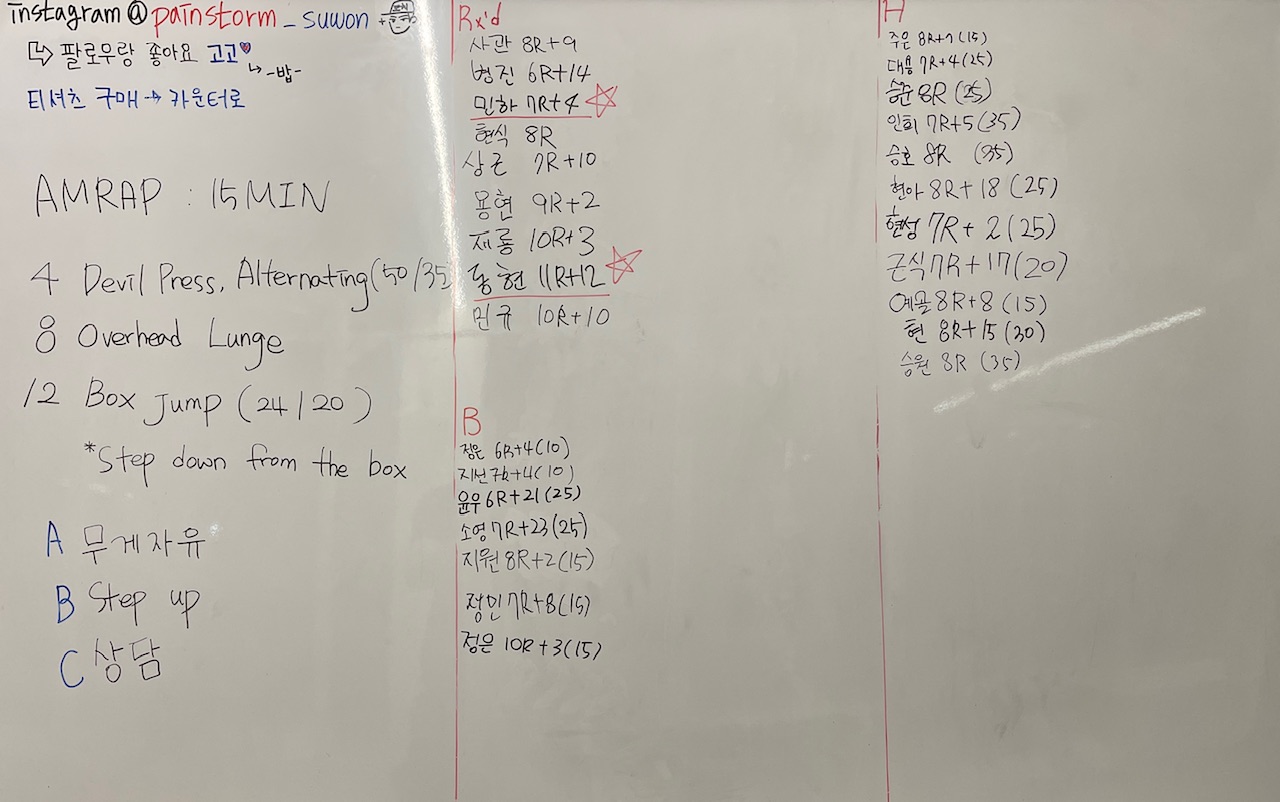 instagram@painstorm_suwon
↳ 팔로우랑 좋아요 고고♥
↳ -밥-
티셔츠 구매 → 카운터로
AMRAP : 15MIN
4 Devil Press, Alternating(50/35
8 Overhead Lunge
12 Box Jump (24/20)
*Step down from the box
A 무게자유
B Step up
C 상담
Rx'd
사관 8R+9
병진 6R+14
민하 7R+4
현식 8R
상근 7R+10
용현 9R+2
재룡 10R+3
동현 11R+12
민규 10R+10
B
정은 6R+4(10)
지선 7R+4(10)
윤우 6R+21(25)
소영 7R+23(25)
지원 8R+2(15)
정민 7R+8(15)
정은 10R+3(15)
H
주은 8R+7(15)
대용 7R+4(25)
승준 8R (25)
인희 7R+5(35)
승호 8R (35)
현아 8R+18 (25)
현성 7R+2(25)
근식 7R+17(20)
예골 8R+8(15)
현 8R+15(30)
승원 8R (35)